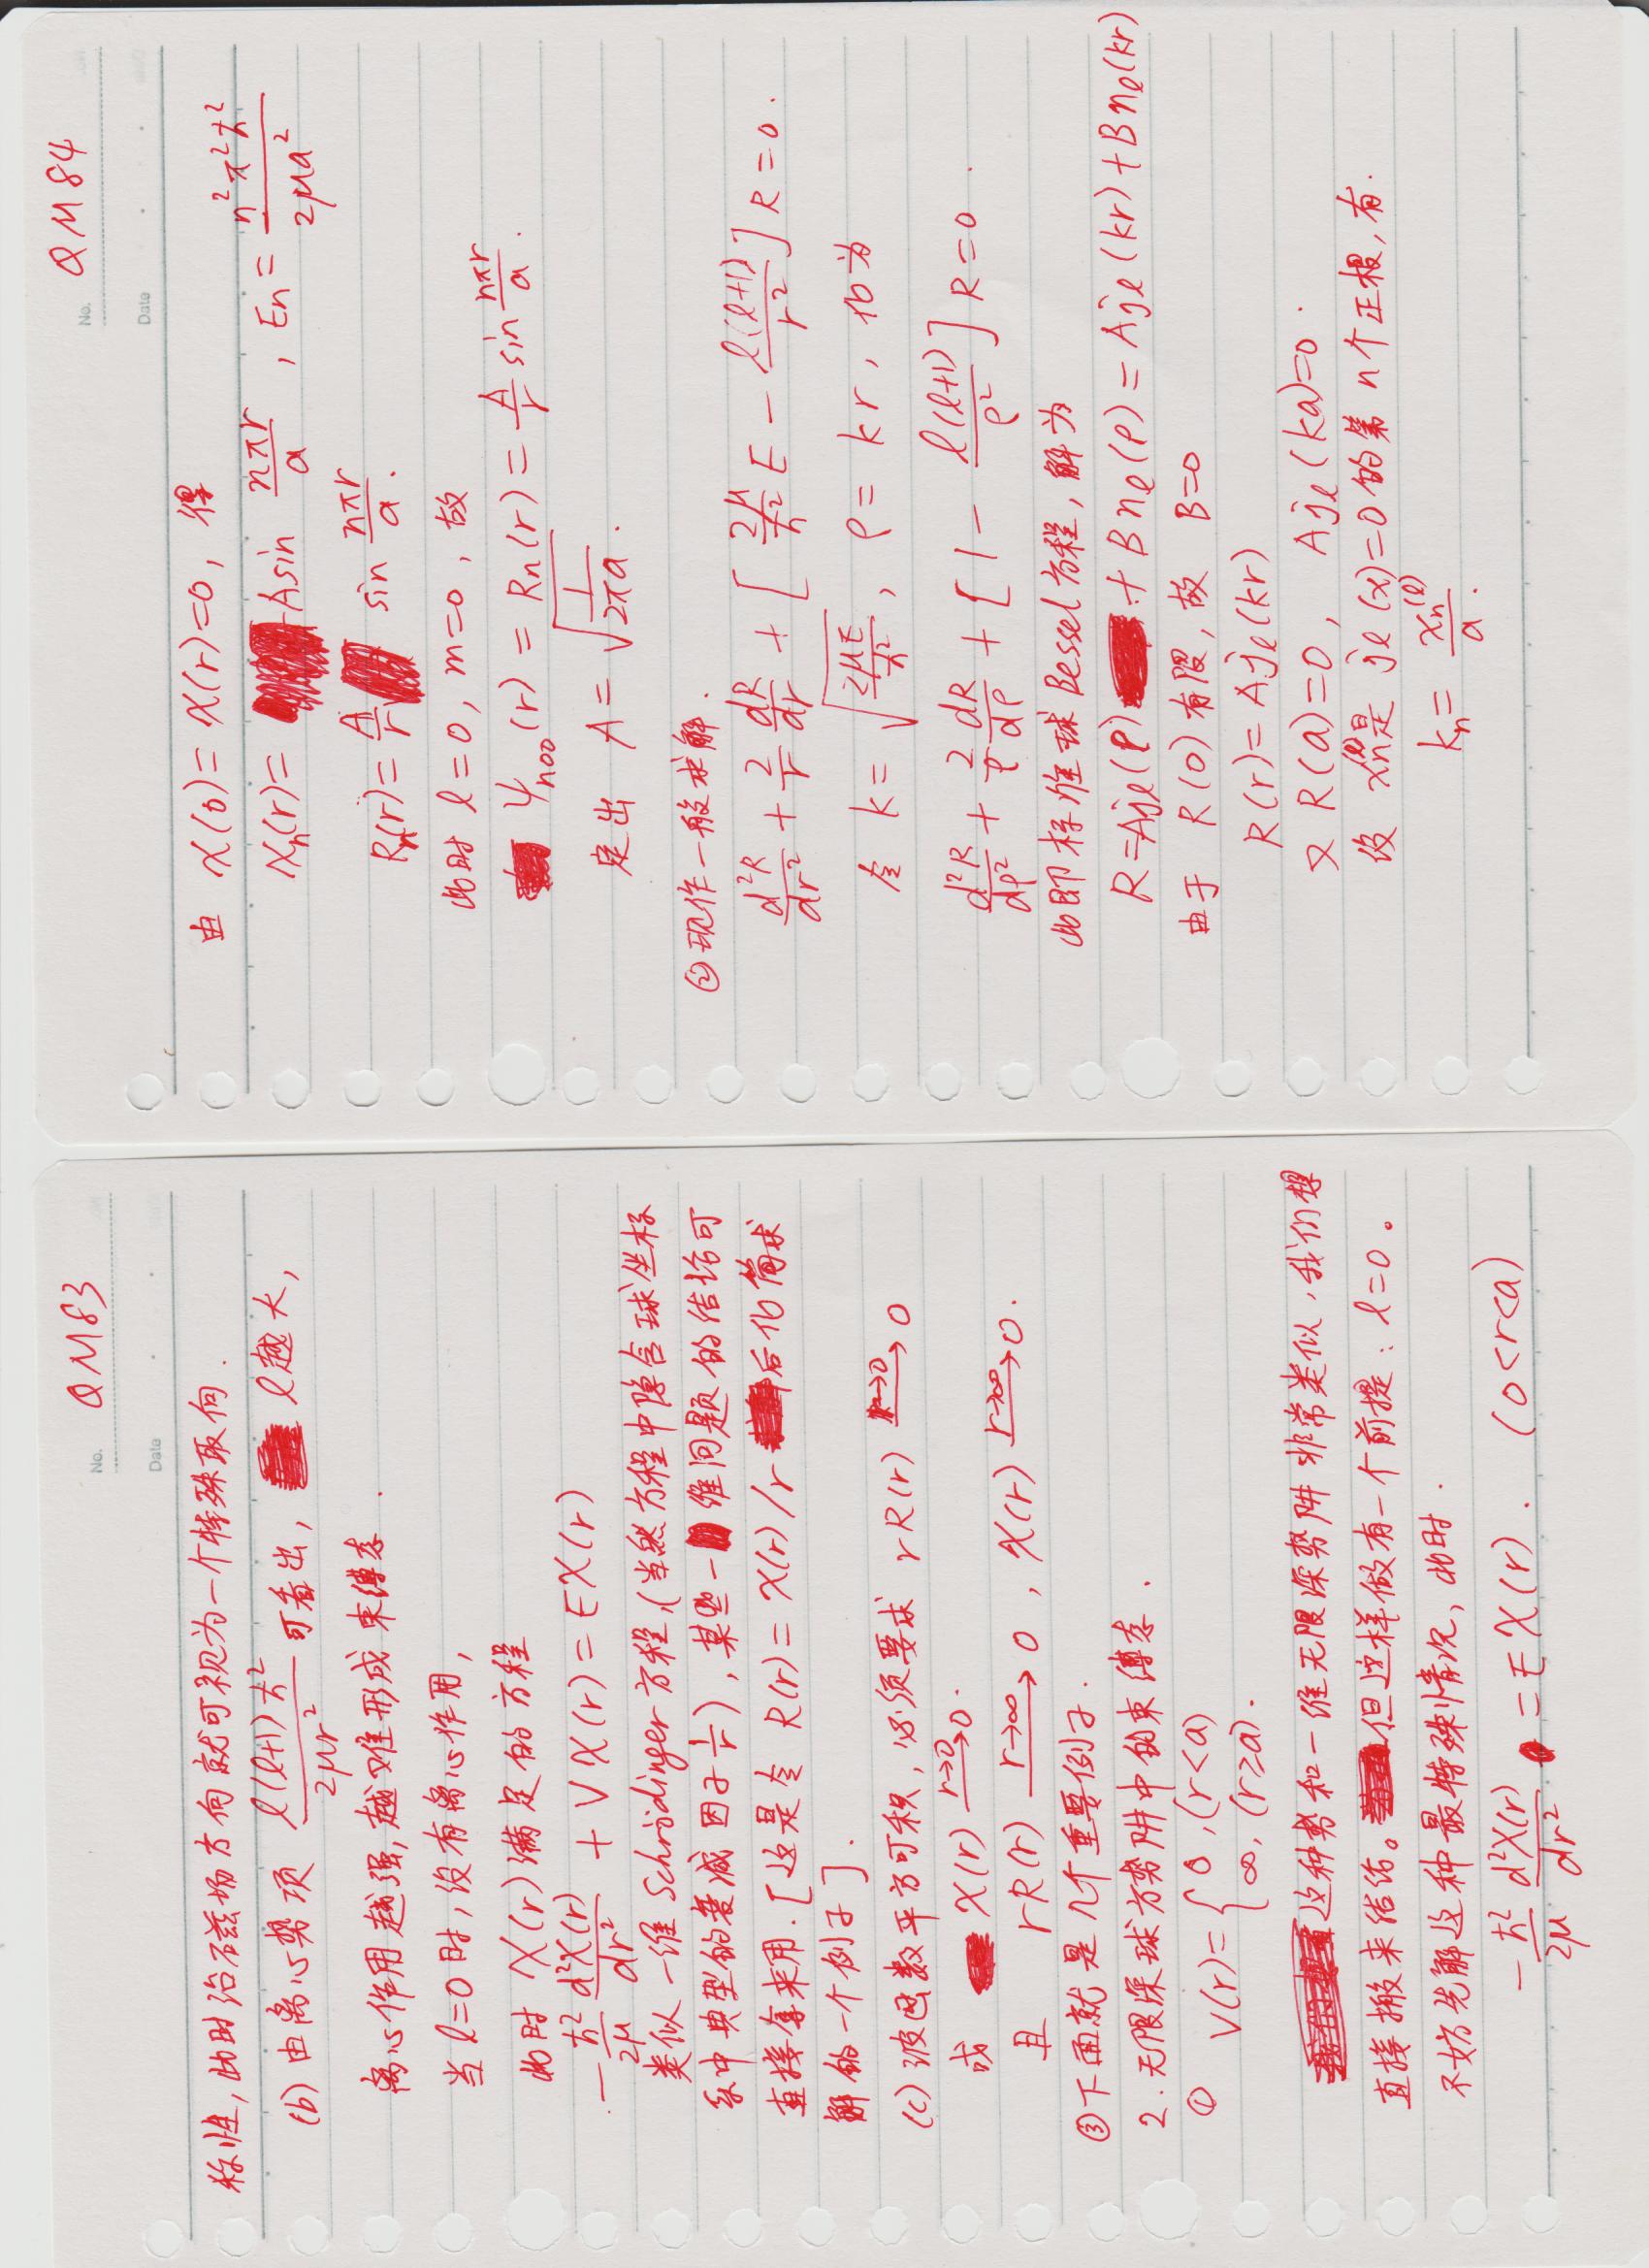 No. QM83
Date
称性,此时沿磁场方向就可视为一个特殊取向.
(b) 由离心势项 \frac{l(l+1)ħ^2}{2μr^2} 可看出, l越大,
离心作用越强,越难形成束缚态.
当 l=0 时,没有离心作用,
此时 χ(r) 满足的方程
-\frac{ħ^2}{2μ} \frac{d^2χ(r)}{dr^2} + Vχ(r) = Eχ(r)
类似一维 Schrödinger 方程,(当然方程中隐含球坐标
系中典型的衰减因子 \frac{1}{r}),某些一维问题的结论可
直接拿来用.[这是令 R(r) = χ(r)/r 后化简求
解的一个例子].
(c) 波函数平方可积,必须要求 rR(r) \xrightarrow{r→0} 0
或 χ(r) \xrightarrow{r→0} 0.
且 rR(r) \xrightarrow{r→∞} 0 , χ(r) \xrightarrow{r→∞} 0.
③下面就是几个重要例子.
2.无限深球方势阱中的束缚态.
① V(r) = { 0 ,(r<a)
∞, (r≥a).
这种势和一维无限深势阱非常类似,我们想
直接搬来结论。但这样做有一个前提: l=0。
不妨先解这种最特殊情况,此时.
-\frac{ħ^2}{2μ} \frac{d^2χ(r)}{dr^2} = Eχ(r). (0<r<a)
No. QM84
Date
由 χ(0) = χ(r) = 0, 得
χ_n(r) = A sin \frac{nπr}{a} , E_n = \frac{n^2π^2ħ^2}{2μa^2}
R_n(r) = \frac{A}{r} sin \frac{nπr}{a}.
此时 l=0, m=0, 故
ψ_{n00}(r) = R_n(r) = \frac{A}{r} sin \frac{nπr}{a}.
定出 A = \sqrt{\frac{1}{2πa}}.
②现作一般求解.
\frac{d^2R}{dr^2} + \frac{2}{r} \frac{dR}{dr} + [\frac{2μ}{ħ^2} E - \frac{l(l+1)}{r^2}] R = 0.
令 k = \sqrt{\frac{2μE}{ħ^2}}, ρ = kr, 化为
\frac{d^2R}{dρ^2} + \frac{2}{ρ} \frac{dR}{dρ} + [1 - \frac{l(l+1)}{ρ^2}] R = 0.
此即标准球 Bessel 方程,解为
R = Aj_l(ρ) + Bn_l(ρ) = Aj_l(kr) + Bn_l(kr)
由于 R(0) 有限,故 B=0
R(r) = Aj_l(kr)
又 R(a)=0, Aj_l(ka)=0.
设 x_n^{(l)} 是 j_l(x)=0 的第 n 个正根,有.
k_n = \frac{x_n^{(l)}}{a}.